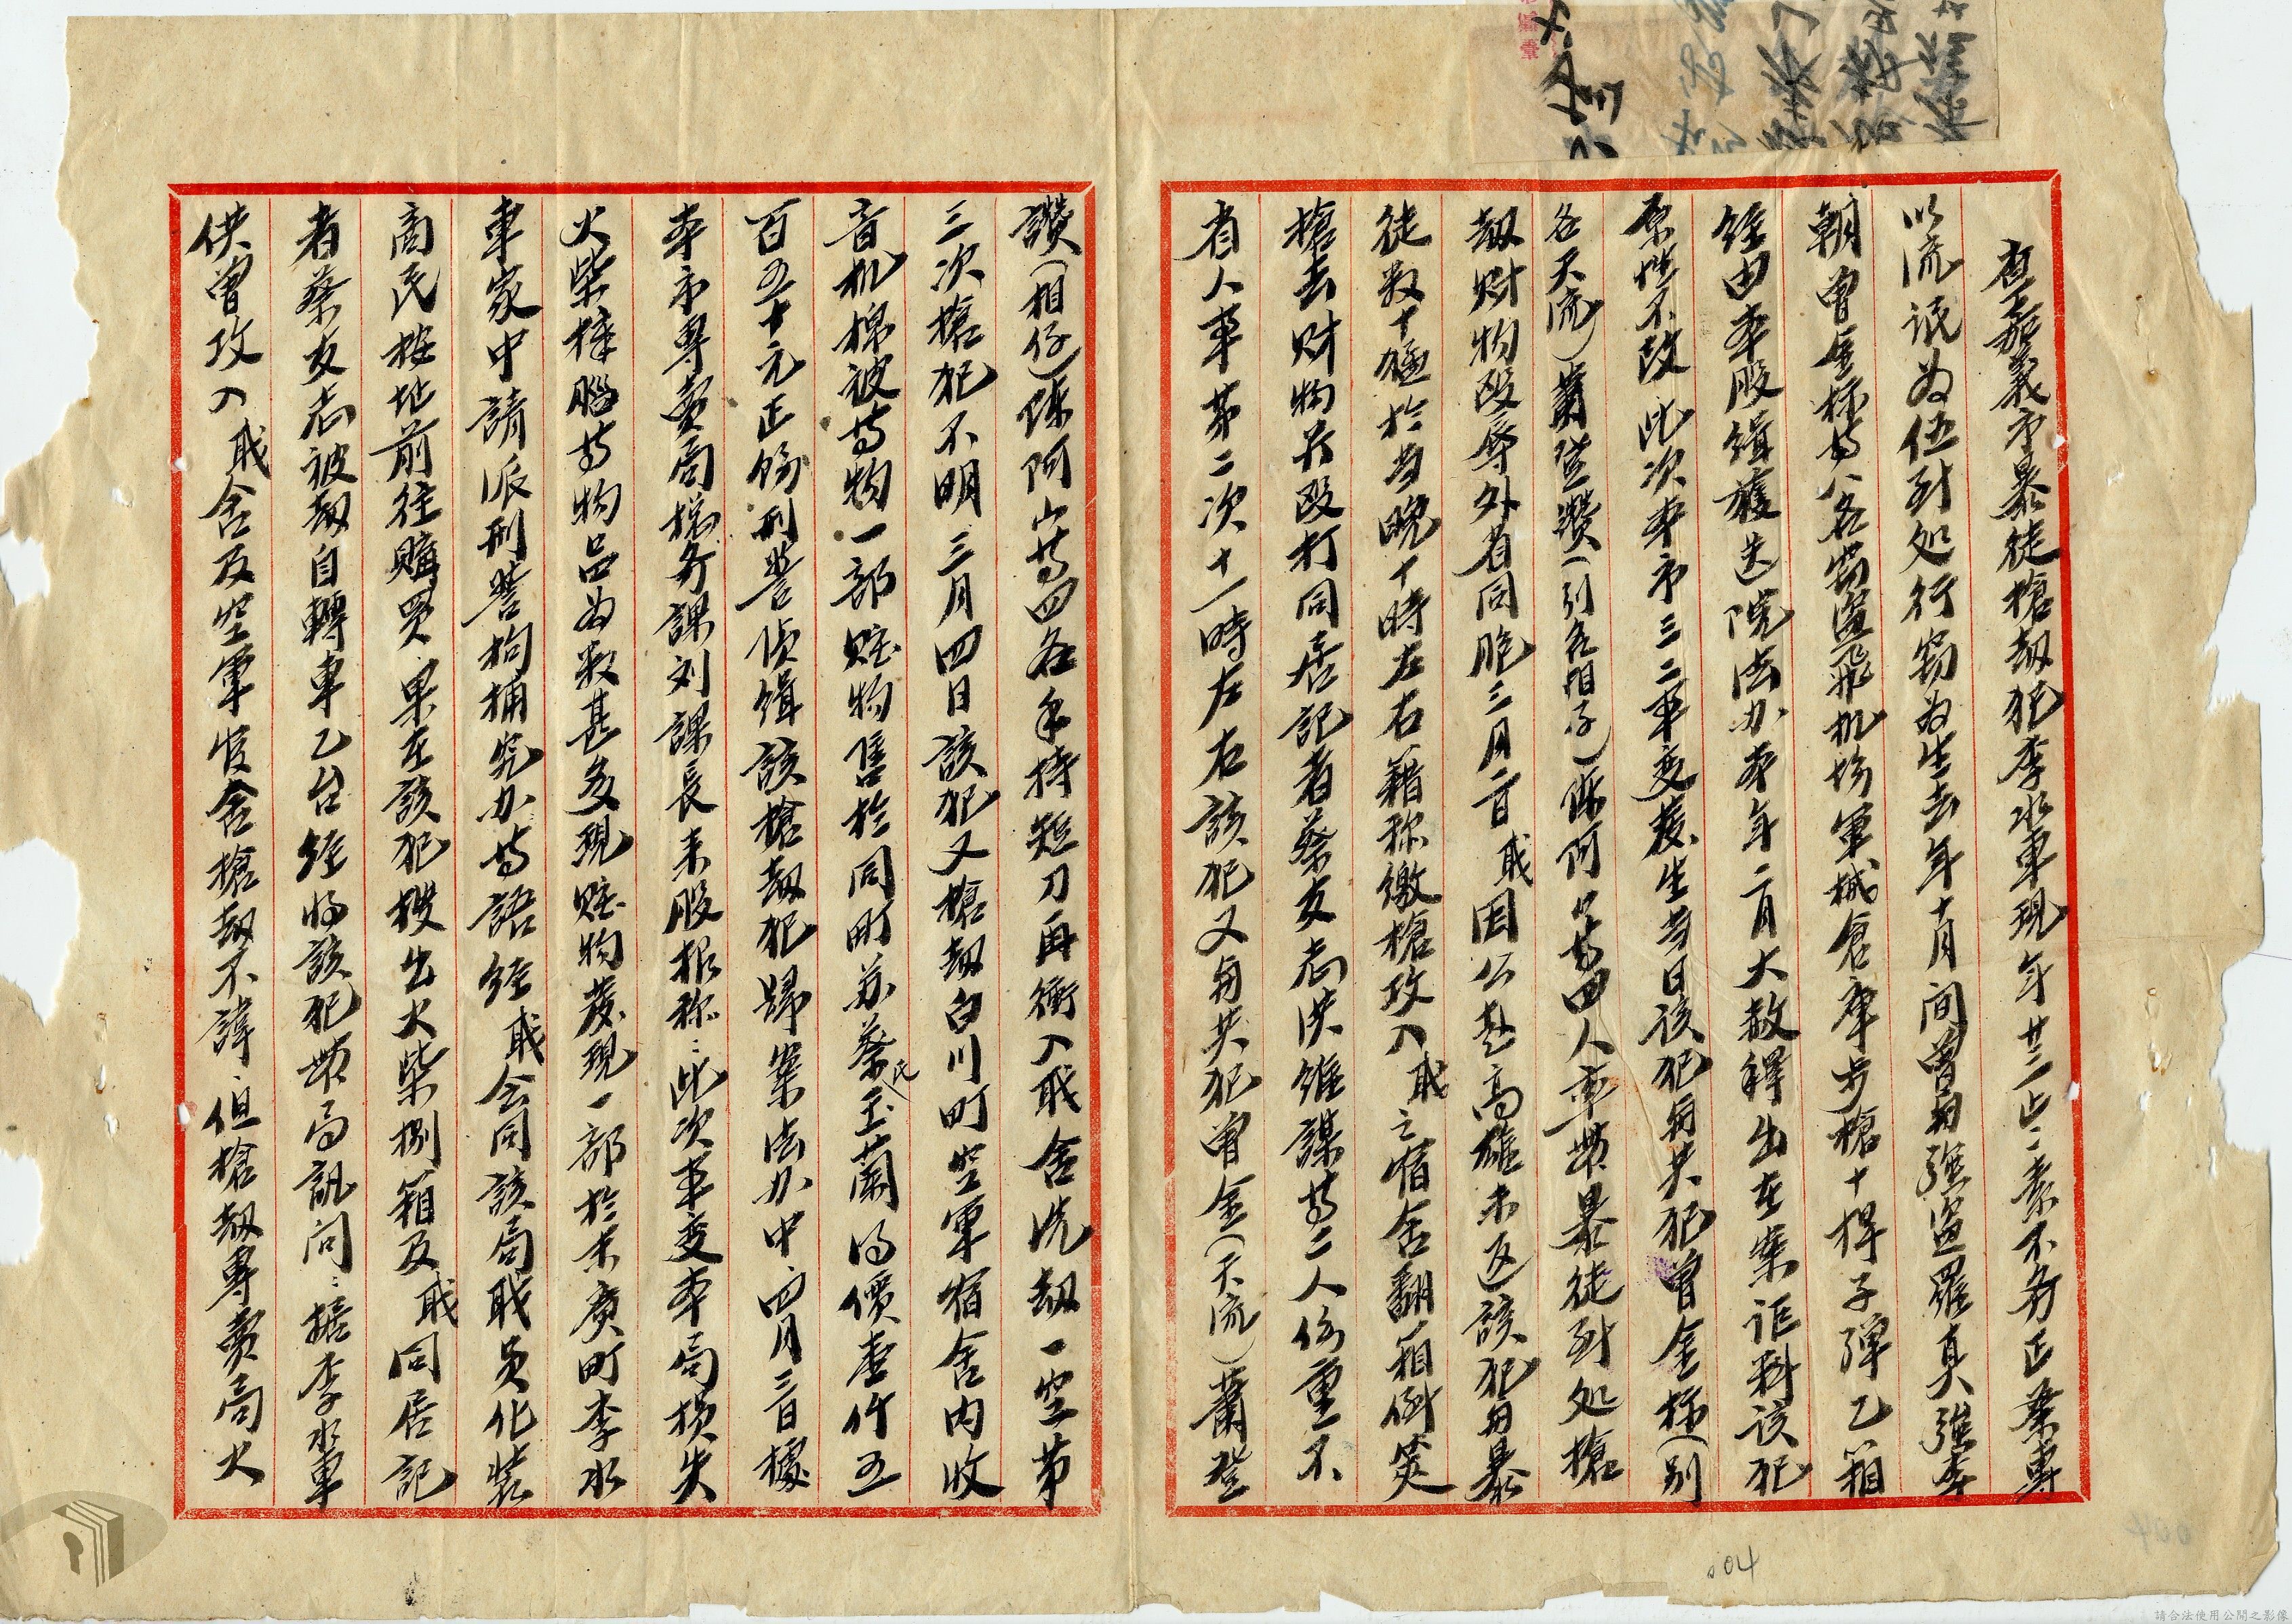 查嘉義市暴徒搶劫犯李水車現年廿三歲素不务正業專
以流氓為伍到処行竊為生去年十月間曾與強盜羅真強李
朝曾金標等八名竊盜飛机場軍械倉庫步槍十桿子彈乙箱
経由本股緝獲送院法办本年二月大赦释出在案詎料該犯
原性不改此次本市三二事变發生當日該犯與共犯曾金标(別
名天流)蕭登讚(別名相仔)陈阿山等四人率带暴徒到処搶
劫财物殴辱外省同胞三月二日職因公赴高雄未返該犯與暴
徒数十猛於当晚十時左右籍称缴槍攻入職之宿舍翻箱倒篋
搶去财物并殴打同居記者蔡友志洪維謀等二人伤重不
省人事第二次十一時左右該犯又與共犯曾金(天流)蕭登
讚(相仔)陈阿山等四名手持短刀再衝入職舍洗劫一空第
三次搶犯不明三月四日該犯又搶劫白川町空軍宿舍内收
音机棉被等物一部贓物售於同町苏蔡氏玉蘭得價壹仟五
百五十元正飭刑警偵緝該搶劫犯歸案法办中四月三日據
本市專賣局梯务課刘課長来股报称:此次事变本局損失
火柴樟腦等物品為数甚多現贓物發現一部於末廣町李水
車家中請派刑警拘捕究办等語経職会同該局職員化装
商民按址前往購買果在該犯搜出火柴捌箱及職同居記
者蔡友志被劫自轉車乙台経將該犯带局訊问:據李水車
供曾攻入職舍及空軍宿舍搶劫不諱但搶劫專賣局火
004
請合法使用公開之影像